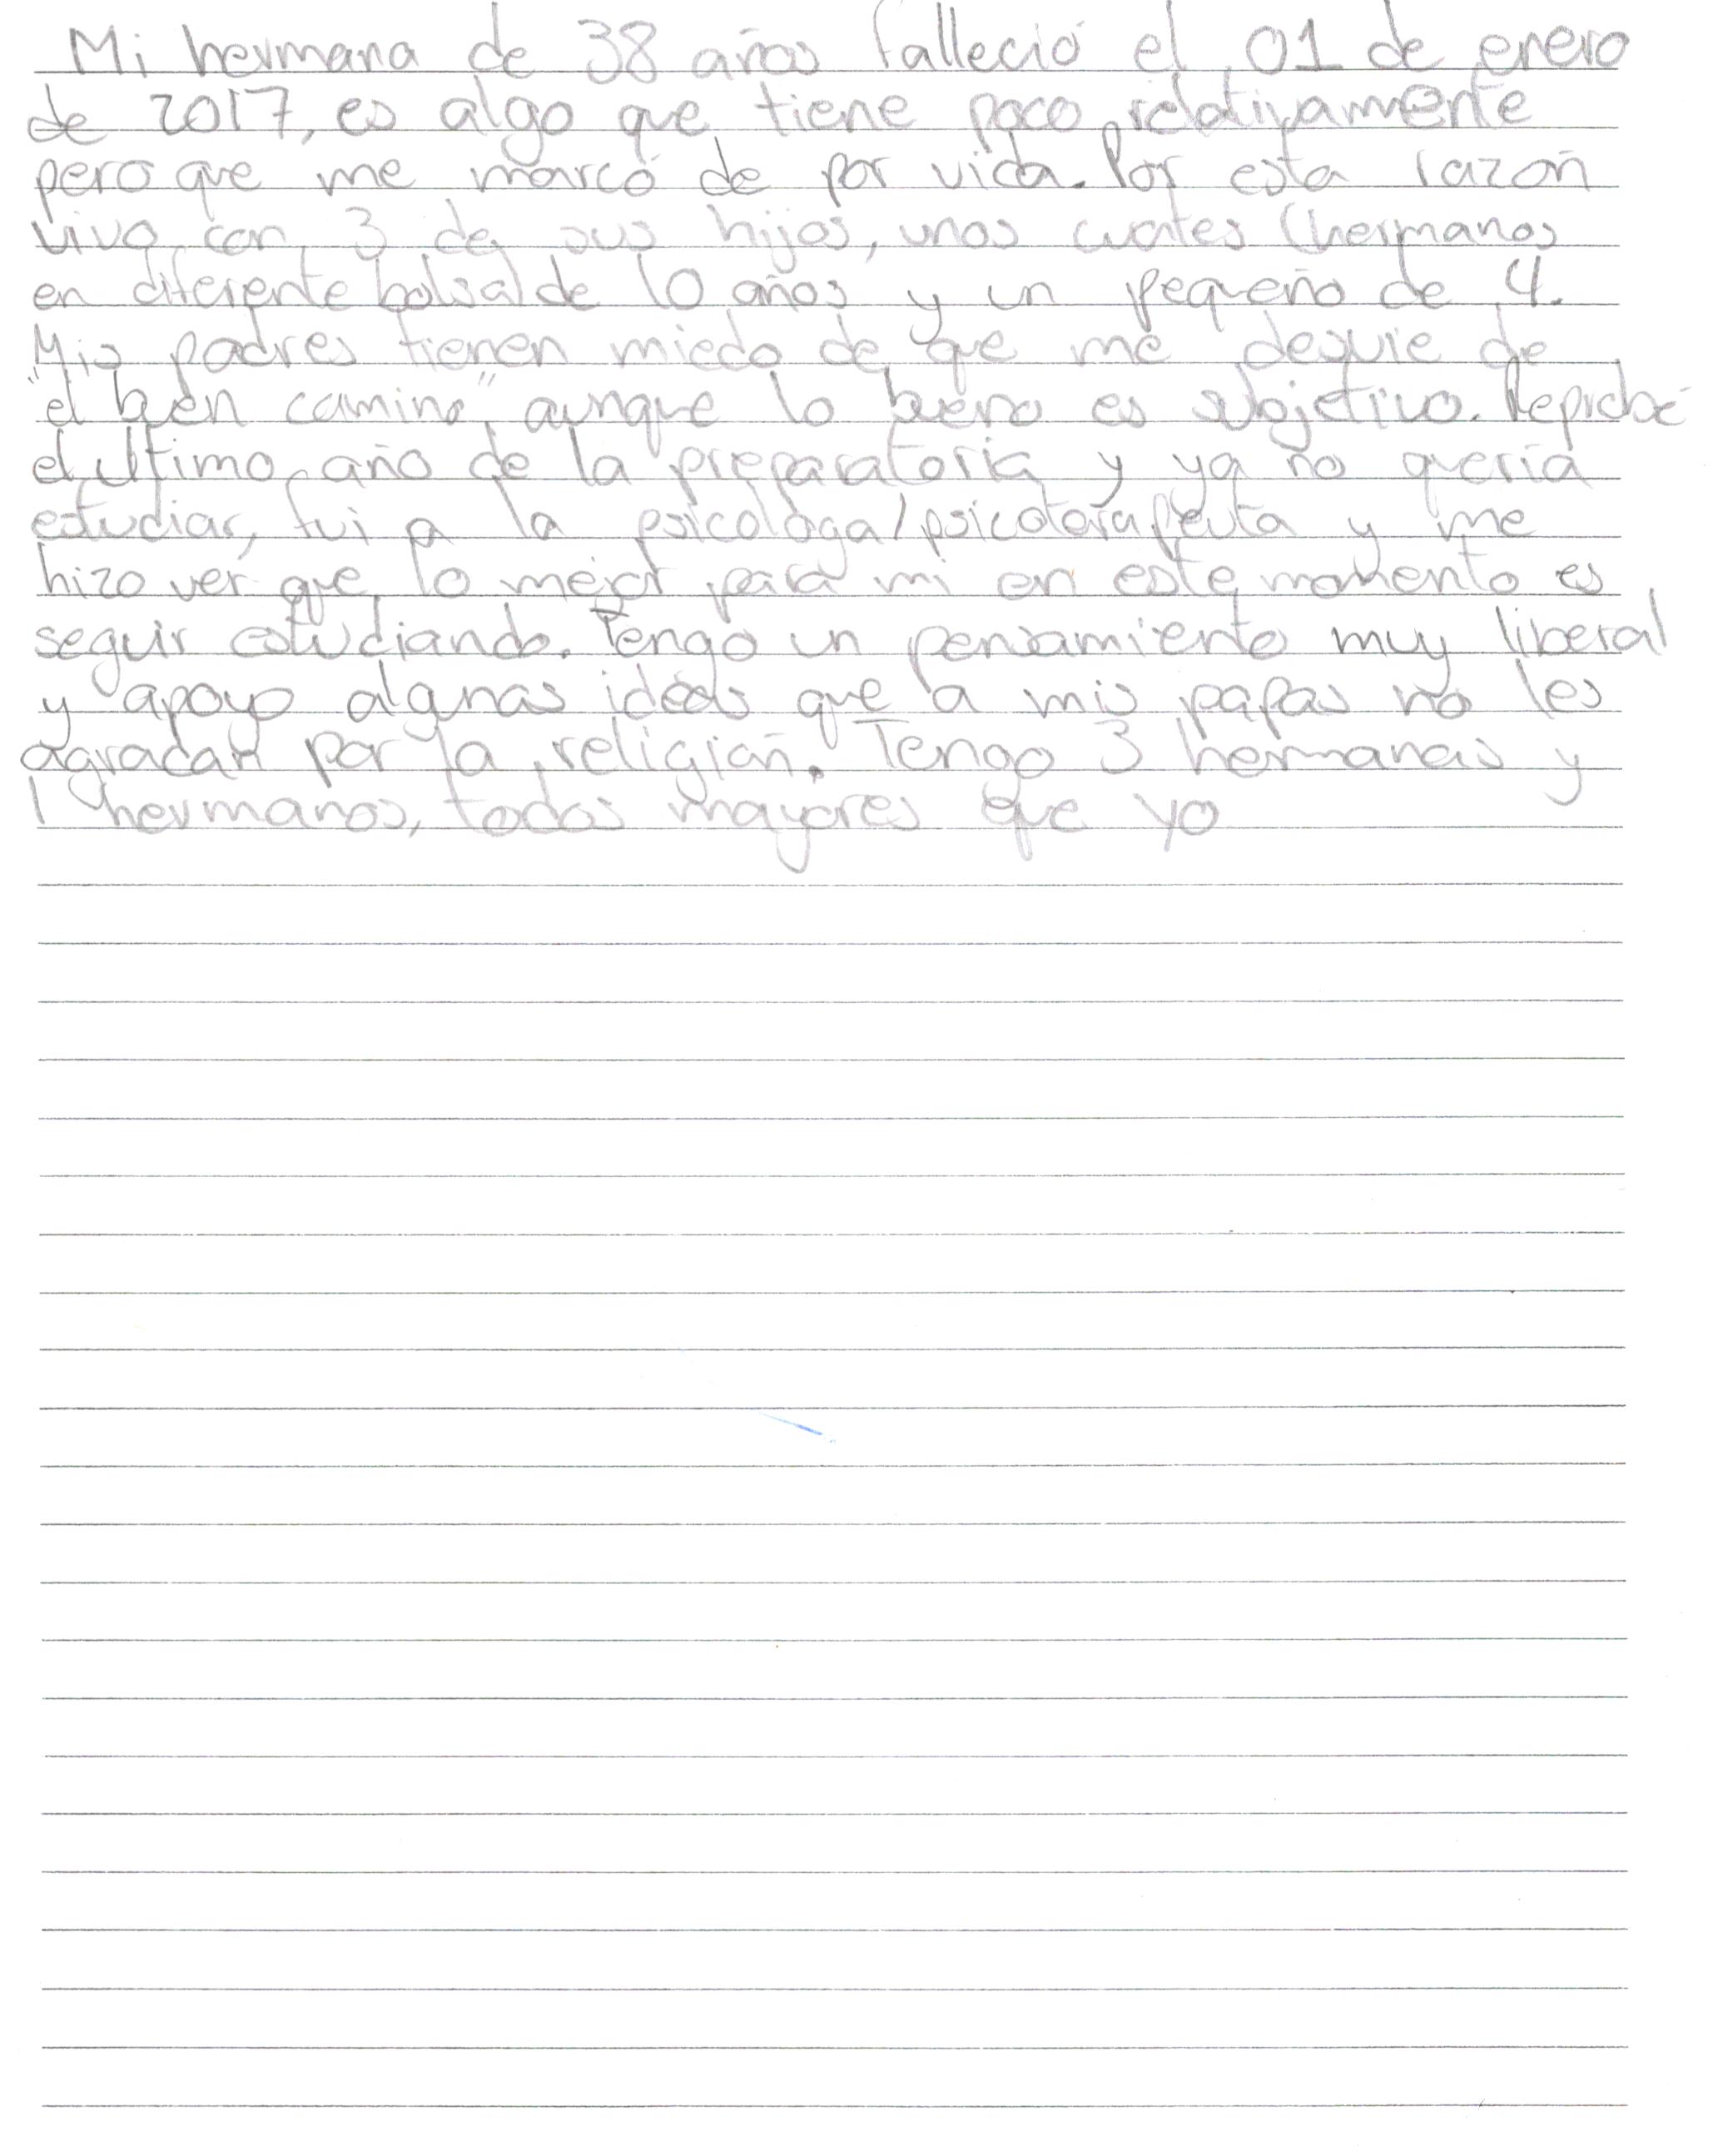 Mi hermana de 38 años falleció el 01 de enero
de 2017, es algo que tiene poco relativamente
pero que me marcó de por vida. Por esta razón
vivo con 3 de sus hijos, unos cuates (hermanos
en diferente bolsa) de 10 años y un pequeño de 4.
Mis padres tienen miedo de que me desvie de
"el buen camino" aunque lo bueno es subjetivo. Reprobé
el ultimo año de la preparatoria y ya no quería
estudiar, fui a la psicologa/psicoterapeuta y me
hizo ver que lo mejor para mi en este momento es
seguir estudiando. Tengo un pensamiento muy liberal
y apoyo algunas ideas que a mis papas no les
agradan por la religión. Tengo 3 hermanas y
1 hermanos, todos mayores que yo